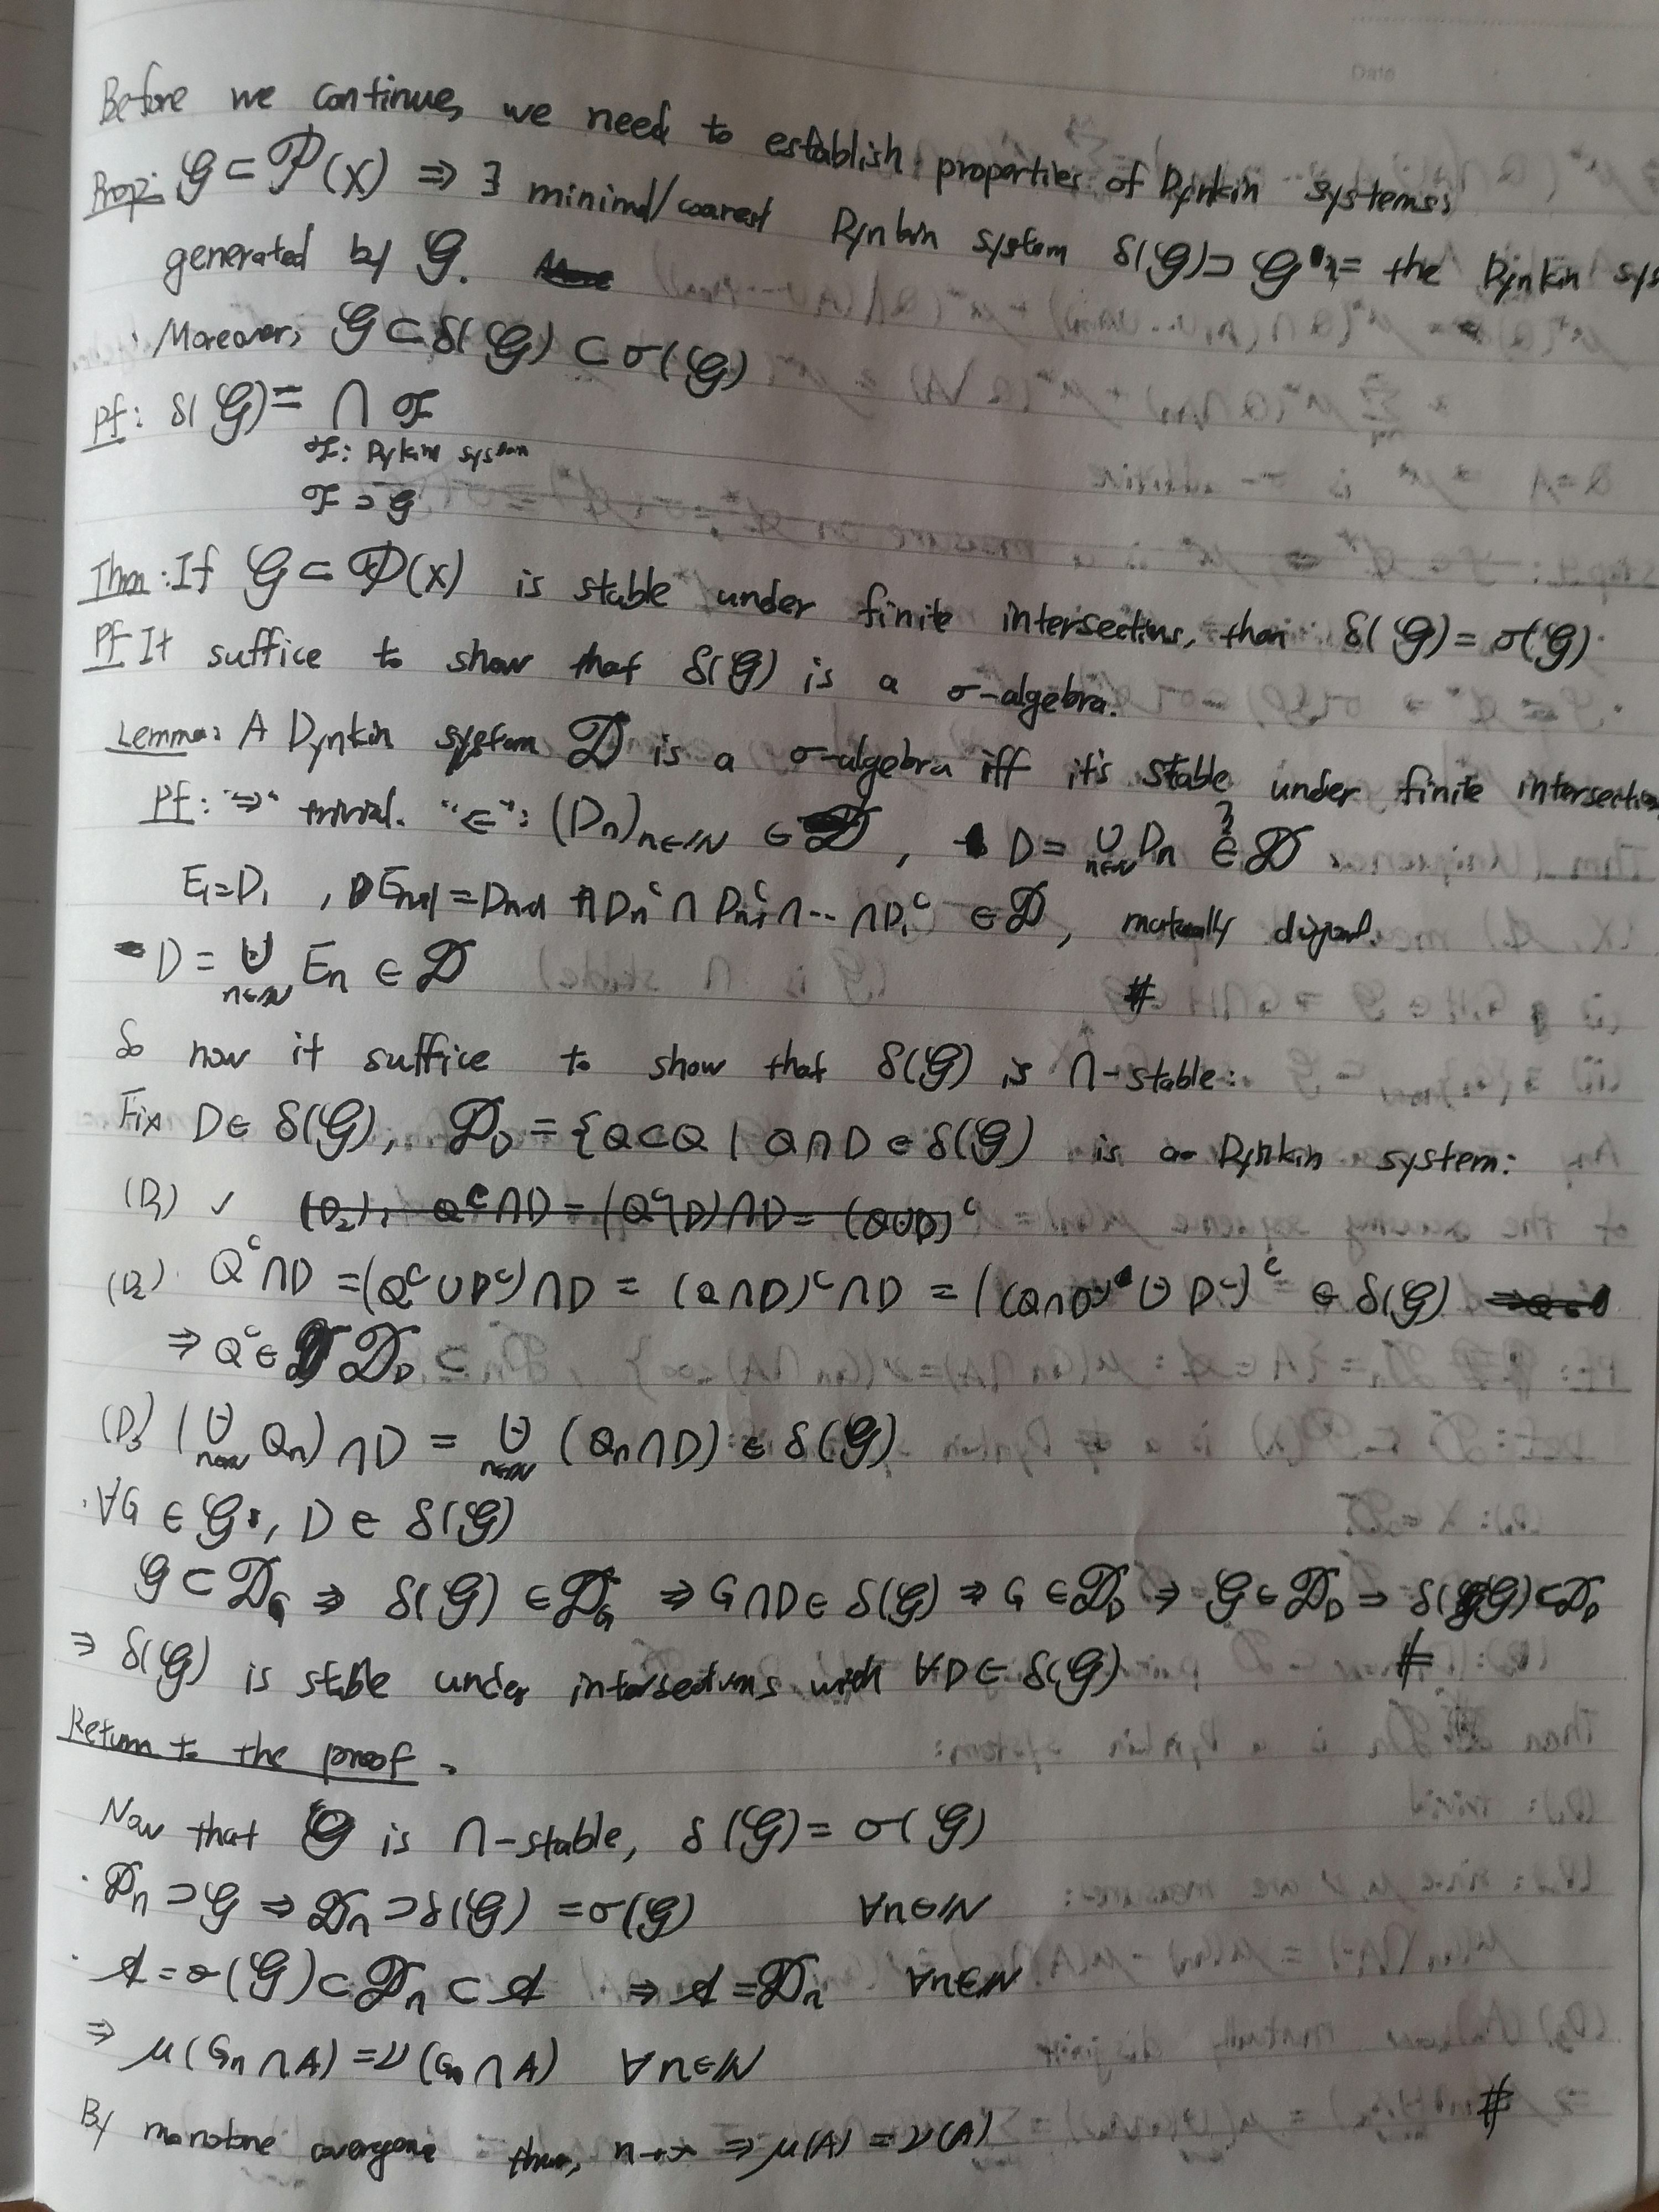 Date
Before we continue, we need to establish properties of Dynkin systems:
Prop: 𝒢 ⊂ 𝒫(X) ⇒ ∃ minimal/coarest Dynkin system δ(𝒢) ⊃ 𝒢 := the Dynkin sys
generated by 𝒢.
· Moreover, 𝒢 ⊂ δ(𝒢) ⊂ σ(𝒢)
Pf: δ(𝒢) = ∩ ℱ
ℱ: Dykin system
ℱ ⊃ 𝒢
Thm: If 𝒢 ⊂ 𝒫(X) is stable under finite intersections, then δ(𝒢) = σ(𝒢).
Pf It suffice to show that δ(𝒢) is a σ-algebra.
Lemma: A Dynkin system 𝒟 is a σ-algebra iff it's stable under finite intersection
Pf: "⇒" trivial. "⇐": (Dn)n∈ℕ ∈ 𝒟, D = ∪n∈ℕ Dn ∈? 𝒟
E1 = D1, En+1 = Dn+1 ∩ Dnᶜ ∩ Dn-1ᶜ ∩ ·· ∩ D1ᶜ ∈ 𝒟, mutually disjoint.
D = ⊍n∈ℕ En ∈ 𝒟 #
So now it suffice to show that δ(𝒢) is ∩-stable:
Fix D ∈ δ(𝒢), 𝒟D = {Q ⊂ Q | Q ∩ D ∈ δ(𝒢) is a Dynkin system:
(D1) ✓ (D2): Qᶜ ∩ D = (Qᶜ ∩ D) ∩ D = (Q ∪ D)ᶜ
(D2) Qᶜ ∩ D = (Qᶜ ∪ Dᶜ) ∩ D = (Q ∩ D)ᶜ ∩ D = ((Q ∩ D) ⊍ Dᶜ)ᶜ ∈ δ(𝒢)
⇒ Qᶜ ∈ 𝒟D
(D3) (⊍n∈ℕ Qn) ∩ D = ⊍n∈ℕ (Qn ∩ D) ∈ δ(𝒢)
· ∀G ∈ 𝒢, D ∈ δ(𝒢)
𝒢 ⊂ 𝒟G ⇒ δ(𝒢) ∈ 𝒟G ⇒ G ∩ D ∈ δ(𝒢) ⇒ G ∈ 𝒟D ⇒ 𝒢 ∈ 𝒟D ⇒ δ(𝒢) ⊂ 𝒟D
⇒ δ(𝒢) is stable under intersections with ∀D ∈ δ(𝒢) #
Return to the proof.
Now that 𝒢 is ∩-stable, δ(𝒢) = σ(𝒢)
· 𝒟n ⊃ 𝒢 ⇒ 𝒟n ⊃ δ(𝒢) = σ(𝒢) ∀n∈ℕ
· 𝒜 = σ(𝒢) ⊂ 𝒟n ⊂ 𝒜 ⇒ 𝒜 = 𝒟n ∀n∈ℕ
⇒ μ(Gn ∩ A) = ν(Gn ∩ A) ∀n∈ℕ
By monotone thm, n→∞ ⇒ μ(A) = ν(A) #